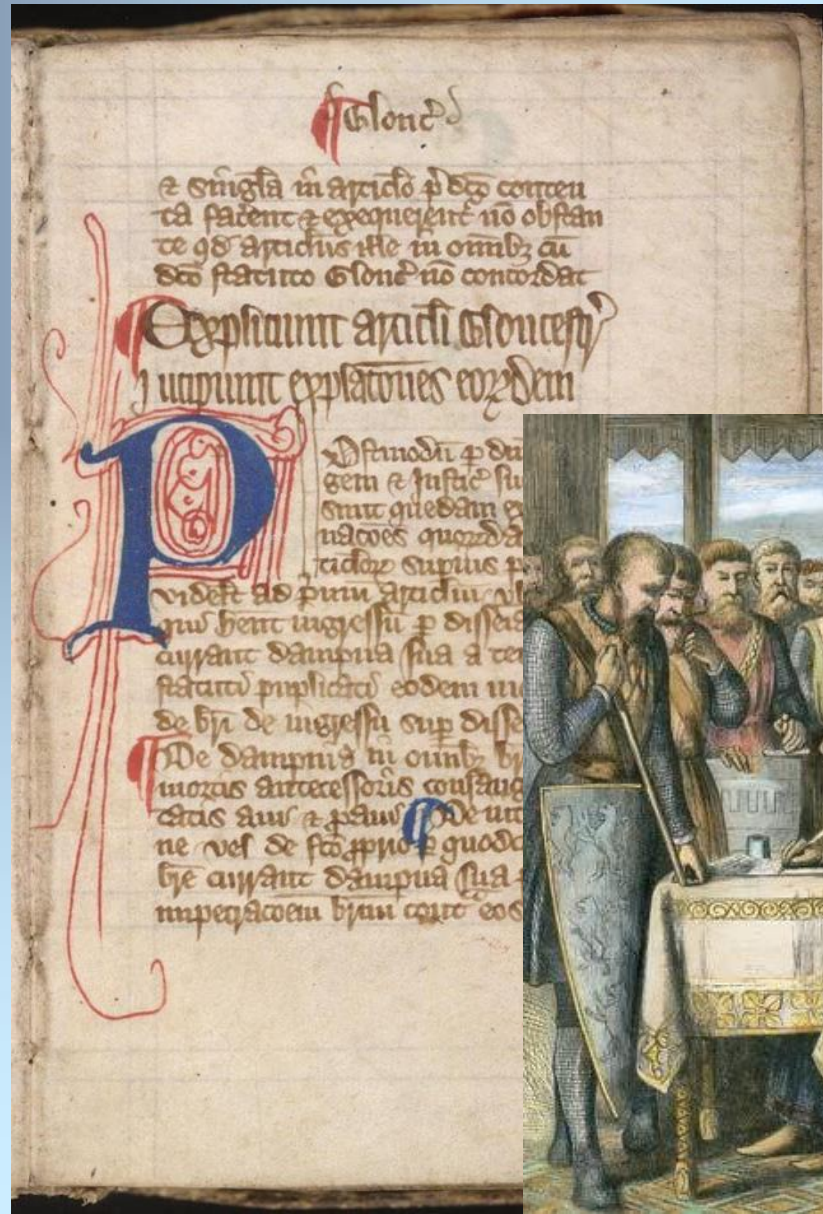 ¶ Glouc̃
& singl̃a in articl̃o p̃dc̃o conten
ta facent & exequerent̃ nõ obstan
te qd̃ articlus ille in omĩbȝ cũ
dc̃o statuto Glouc̃ nõ concordat
¶ Expliciunt articl̃i Gloucestr̃
Incipiunt explac̃ones eorꝝdem
Postmodũ p dñ
gem & Justic̃ su
sunt quedam ex
nac̃oes quorꝝda
ticlorꝝ supius p
videlt̃ ad p̃mũ articlm̃ vl
qui h̃ent ingressũ p disseis
currant dampna sua a te
statuti puplicati eodem m
de br̃i de ingressu sup disse
¶ De dampnis in omĩbȝ br
mortis antecessoris consang
tatis aui & p̃aui ¶ De int
ne vel de fc̃o p̱prio p quod
br̃e currant dampna sua
impetrac̃oem br̃ium eos